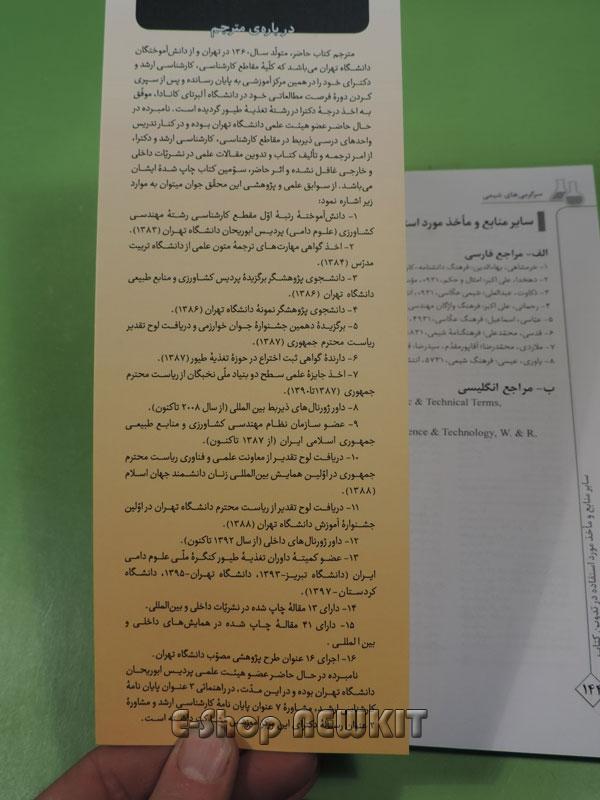 درباره‌ی مترجم
مترجم کتاب حاضر، متولّد سال ۱۳۶۰ در تهران و از دانش‌آموختگان
دانشگاه تهران می‌باشد که کلّیهٔ مقاطع کارشناسی، کارشناسی ارشد و
دکترای خود را در همین مرکز آموزشی به پایان رسانده و پس از سپری
کردن دورهٔ فرصت مطالعاتی خود در دانشگاه آلبرتای کانادا، موفّق
به اخذ درجهٔ دکترا در رشتهٔ تغذیهٔ طیور گردیده است. نامبرده در
حال حاضر عضو هیئت علمی دانشگاه تهران بوده و در کنار تدریس
واحدهای درسی ذیربط در مقاطع کارشناسی، کارشناسی ارشد و دکترا،
از امر ترجمه و تألیف کتاب و تدوین مقالات علمی در نشریّات داخلی
و خارجی غافل نشده و اثر حاضر، سوّمین کتاب چاپ شدهٔ ایشان
می‌باشد. از سوابق علمی و پژوهشی این محقّق جوان میتوان به موارد
زیر اشاره نمود:
۱- دانش‌آموختهٔ رتبهٔ اوّل مقطع کارشناسی رشتهٔ مهندسی
کشاورزی (علوم دامی) پردیس ابوریحان دانشگاه تهران (۱۳۸۳).
۲- اخذ گواهی مهارت‌های ترجمهٔ متون علمی از دانشگاه تربیت
مدرّس (۱۳۸۴).
۳- دانشجوی پژوهشگر برگزیدهٔ پردیس کشاورزی و منابع طبیعی
دانشگاه تهران (۱۳۸۶).
۴- دانشجوی پژوهشگر نمونهٔ دانشگاه تهران (۱۳۸۶).
۵- برگزیدهٔ دهمین جشنوارهٔ جوان خوارزمی و دریافت لوح تقدیر
ریاست محترم جمهوری (۱۳۸۷).
۶- دارندهٔ گواهی ثبت اختراع در حوزهٔ تغذیهٔ طیور (۱۳۸۷).
۷- اخذ جایزهٔ علمی سطح دو بنیاد ملّی نخبگان از ریاست محترم
جمهوری (۱۳۸۷تا۱۳۹۰).
۸- داور ژورنال‌های ذیربط بین المللی (از سال ۲۰۰۸ تاکنون).
۹- عضو سازمان نظام مهندسی کشاورزی و منابع طبیعی
جمهوری اسلامی ایران (از ۱۳۸۷ تاکنون).
۱۰- دریافت لوح تقدیر از معاونت علمی و فناوری ریاست محترم
جمهوری در اوّلین همایش بین‌المللی زنان دانشمند جهان اسلام
(۱۳۸۸).
۱۱- دریافت لوح تقدیر از ریاست محترم دانشگاه تهران در اوّلین
جشنوارهٔ آموزش دانشگاه تهران (۱۳۸۸).
۱۲- داور ژورنال‌های داخلی (از سال ۱۳۹۲ تاکنون).
۱۳- عضو کمیتهٔ داوران تغذیهٔ طیور کنگرهٔ ملّی علوم دامی
ایران (دانشگاه تبریز-۱۳۹۳، دانشگاه تهران-۱۳۹۵، دانشگاه
کردستان-۱۳۹۷).
۱۴- دارای ۱۳ مقالهٔ چاپ شده در نشریّات داخلی و بین‌المللی.
۱۵- دارای ۴۱ مقالهٔ چاپ شده در همایش‌های داخلی و
بین‌المللی.
۱۶- اجرای ۱۶ عنوان طرح پژوهشی مصوّب دانشگاه تهران.
نامبرده در حال حاضر عضو هیئت علمی پردیس ابوریحان
دانشگاه تهران بوده و در این مدّت، در راهنمائی ۳ عنوان پایان نامهٔ
کارشناسی ارشد، مشاورهٔ ۷ عنوان پایان نامهٔ کارشناسی ارشد و مشاورهٔ
E-Shop NEWKIT
سرگرمی‌های شیمی
سایر منابع و مآخذ مورد
الف- مراجع فارسی
۱- خرمشاهی، بهاءالدین: فرهنگ دانشنامه
۲- دهخدا، علی اکبر: امثال و حکم
ب- مراجع انگلیسی
& Technical Terms,
& Technology, W. & R.
سایر منابع و مآخذ مورد استفاده در تدوین کتاب
۱۴۴